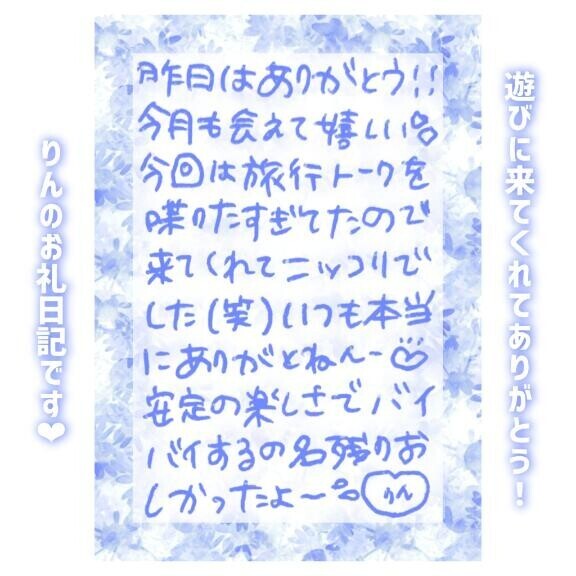 遊びに来てくれてありがとう！
昨日はありがとウ!!
今月も会えて嬉しい。
今回は旅行トークを
喋りたすぎてたので
来てくれてニッコリで
した(笑)いつも本当
にありがとねん〜♡
安定の楽しさでバイ
バイするの名残りお
しかったよ〜。
りん
りんのお礼日記です❤